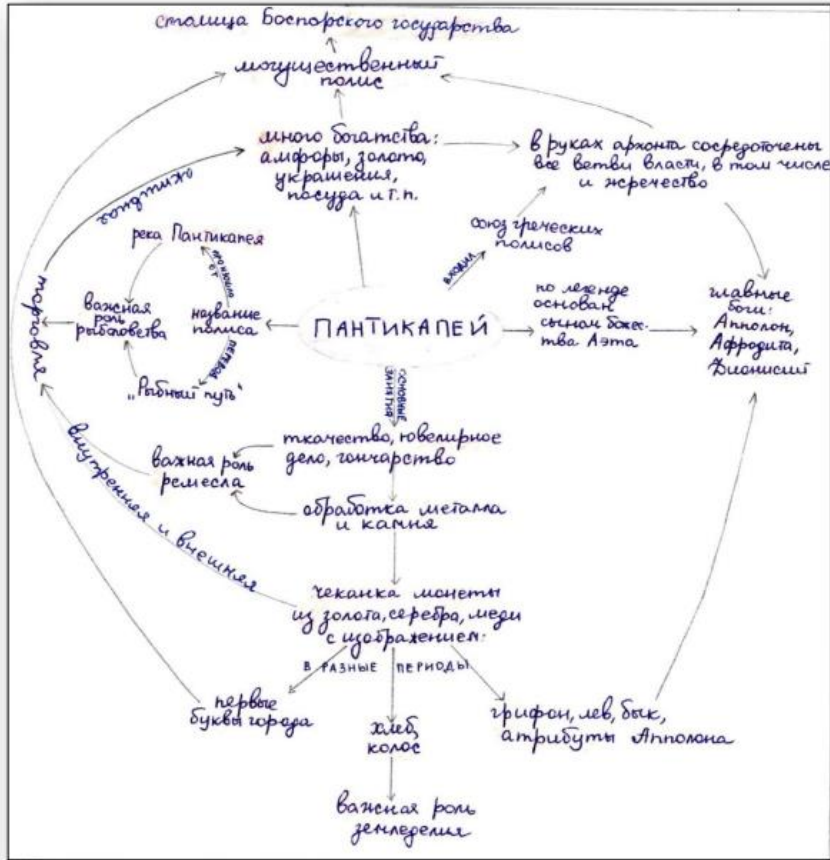 столица Боспорского государства
могущественный
полис
много богатства:
амфоры, золото,
украшения,
посуда и т.п.
в руках архонта сосредоточены
все ветви власти, в том числе
и жречество
активная
союз греческих
полисов
входил
река Пантикапея
произошло
от
название
полиса
перевод
важная
роль
рыболовства
„Рыбный путь"
торговля
ПАНТИКАПЕЙ
по легенде
основан
сыном божес-
тва Аэта
главные
боги:
Апполон,
Афродита,
Дионисий
ОСНОВНЫЕ
ЗАНЯТИЯ
ткачество, ювелирное
дело, гончарство
важная роль
ремесла
обработка металла
и камня
внутренняя и внешняя
чеканка монеты
из золота, серебра, меди
с изображением:
В РАЗНЫЕ ПЕРИОДЫ
первые
буквы города
хлеб,
колос
грифон, лев, бык,
атрибуты Апполона
важная роль
земледелия